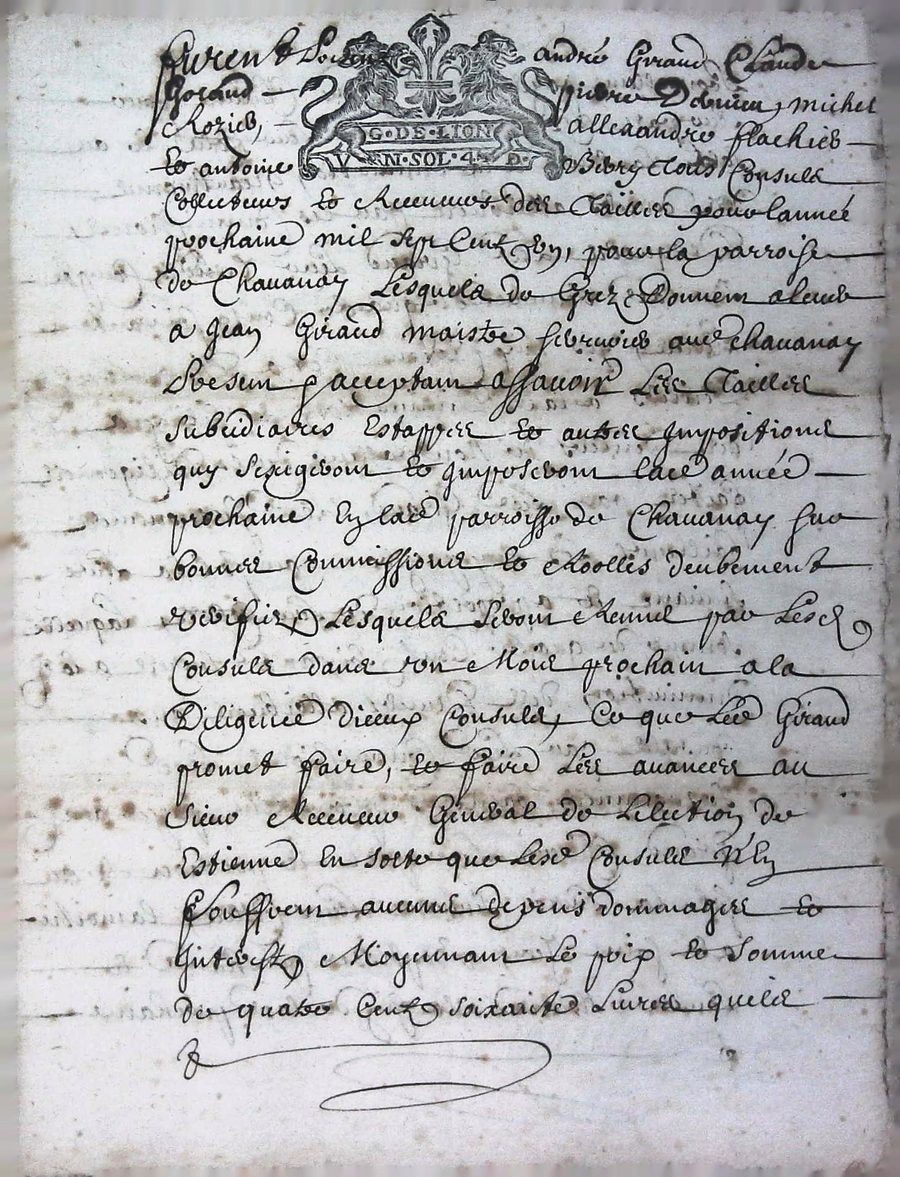 furent presens andré Giraud Claude
Giraud pierre michel
Rozier, allexandre flachier
et antoine Viery tous Consuls
G·DE·LION
VN·SOL·4·D·
Collecteurs et Receveurs des Tailles pour lannée
prochaine mil sept Cent un, pour la parroisse
de Chavanay Lesquels de Grez Donnent a leue
a Jean Giraud maistre serrurier aud chavanay
present & acceptant assavoir Les Tailles
subcidiaires Estappes et autres Impositions
quy sexigeront et Imposeront lad année
prochaine En lad parroisse de Chavanay sur
bonnes Commissions et Roolles deubement
veriffiez, Lesquels seront Remis par Lesd
Consuls dans un Mois prochain a la
Diligence diceux Consuls, Ce que Led Giraud
promet faire, et faire Les avances au
sieur Receveur General de Lelection de
Estienne En sorte que Lesd Consuls N'En
souffrent aucuns depens dommages et
Interests Moyennant Le prix et somme
de quatre Cents soixante Livres quils